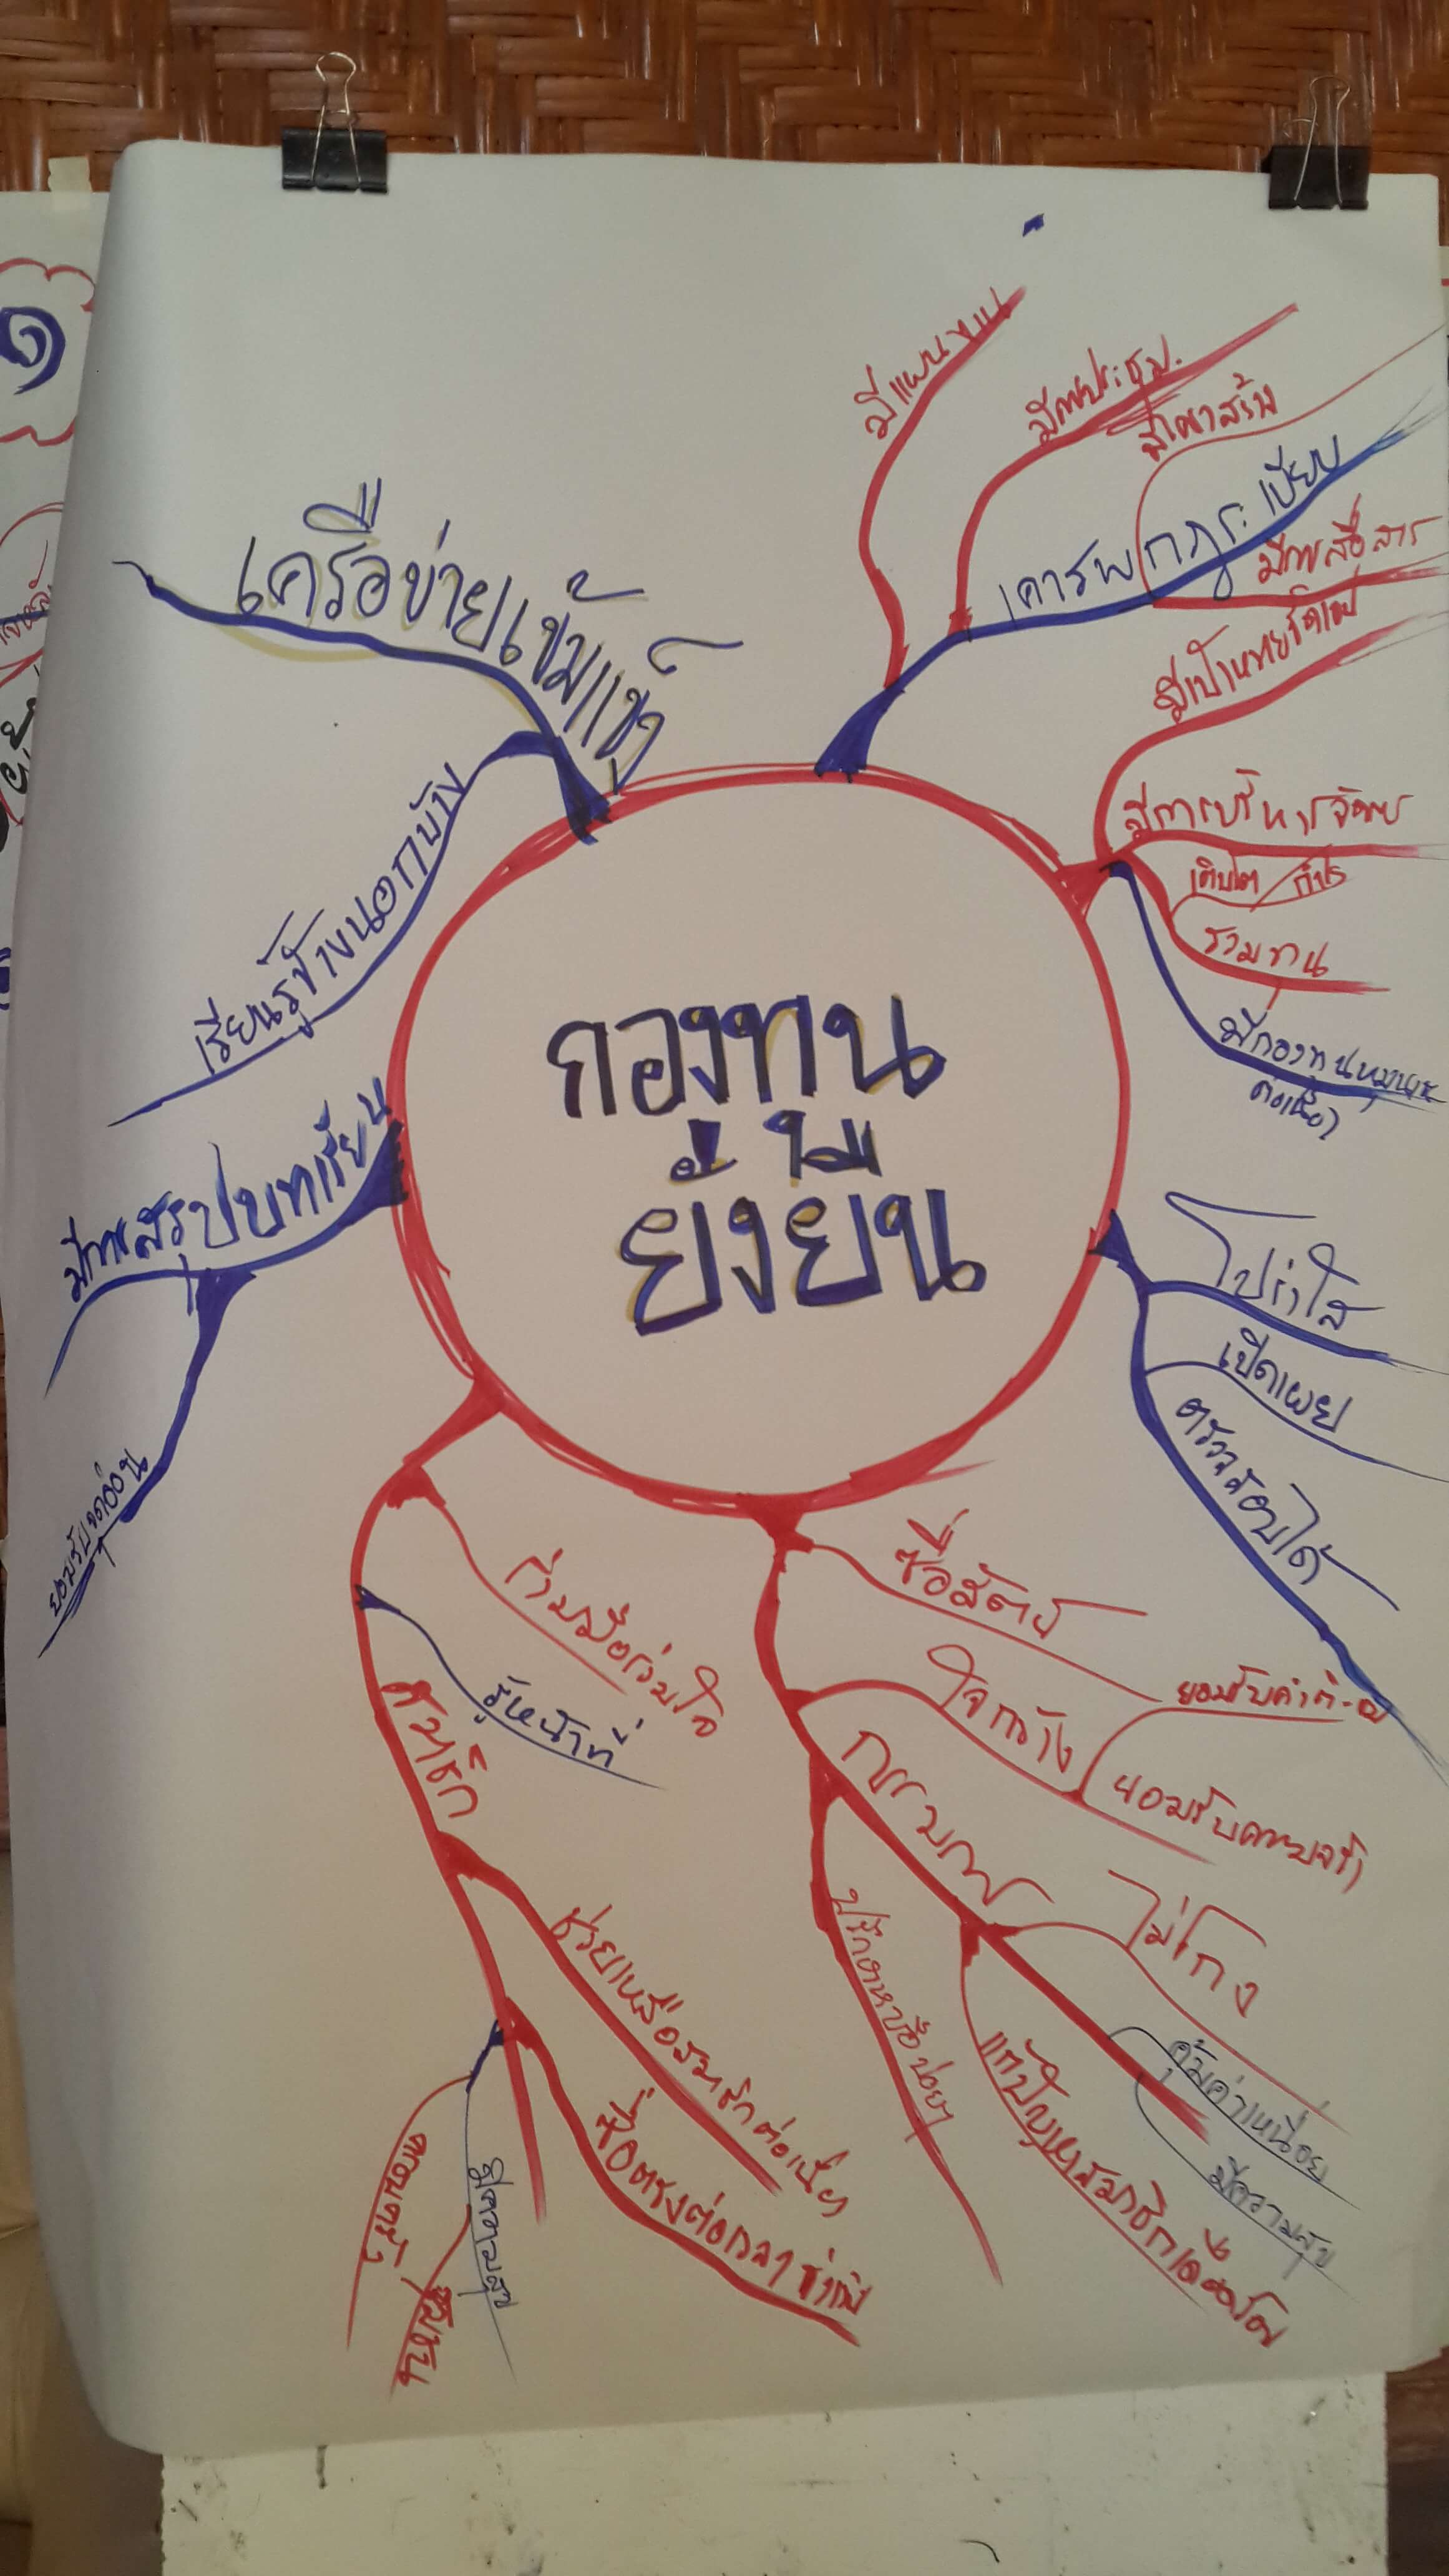 กองทุน
ยั่งยืน
มีแผนงาน
มีการประชุม
เคารพกฎระเบียบ
มีการสื่อสาร
มีเป้าหมายชัดเจน
มีการบริหารจัดการ
เติบโต
รวมทุน
มีกองทุนหมุนเวียน
ต่อเนื่อง
โปร่งใส
เปิดเผย
ตรวจสอบได้
ซื่อสัตย์
ใจกว้าง
ยอมรับความจริง
กรรมการ
ไม่โกง
คุ้มค่าเหนื่อย
มีความสุข
ปรึกษาหารือบ่อยๆ
ร่วมมือร่วมใจ
รู้หน้าที่
สมาชิก
ซื่อตรงต่อเวลา
มีความสุข
ครอบครัว
ชุมชน
มีการสรุปบทเรียน
ยอมรับจุดอ่อน
เรียนรู้ข้างนอกบ้าง
เครือข่ายเข้มแข็ง
๑